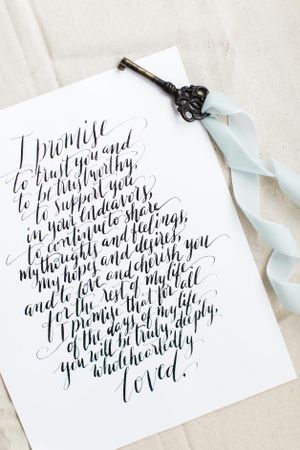 I promise
to trust you and
to be trustworthy,
to support you
in your endeavors,
to continue to share
my thoughts and feelings,
my hopes and desires,
and to love and cherish you
for the rest of my life.
I promise that for all
of the days of my life
you will be truly, deeply,
wholeheartedly
loved.